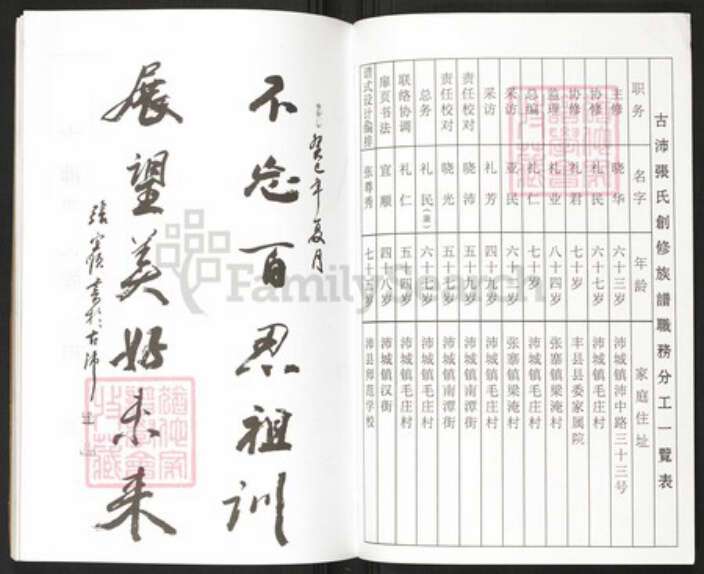 古沛張氏創修族譜職務分工一覽表
职务 名字 年龄 家庭住址
主修 晓华 六十三岁 沛城镇沛中路三十三号
协修 礼民 六十七岁 沛城镇毛庄村
协修 礼君 七十岁 丰县县委家属院
监理 礼业 八十四岁 张寨镇梁淹村
总编 礼仁 七十岁 沛城镇毛庄村
采访 亚民 六十三岁 张寨镇梁淹村
采访 礼芳 四十九岁 沛城镇毛庄村
责任校对 晓沛 五十九岁 沛城镇南潭街
责任校对 晓光 五十七岁 沛城镇南潭街
总务 礼民(兼) 六十七岁 沛城镇毛庄村
联络协调 礼仁 五十四岁 沛城镇毛庄村
扉页书法 宜顺 四十八岁 沛城镇汉街
谱式设计编排 张尊秀 七十五岁 沛县师范学校
癸巳年夏月
不忘百忍祖训
展望美好未来
張宜顺書於古沛
FamilySearch